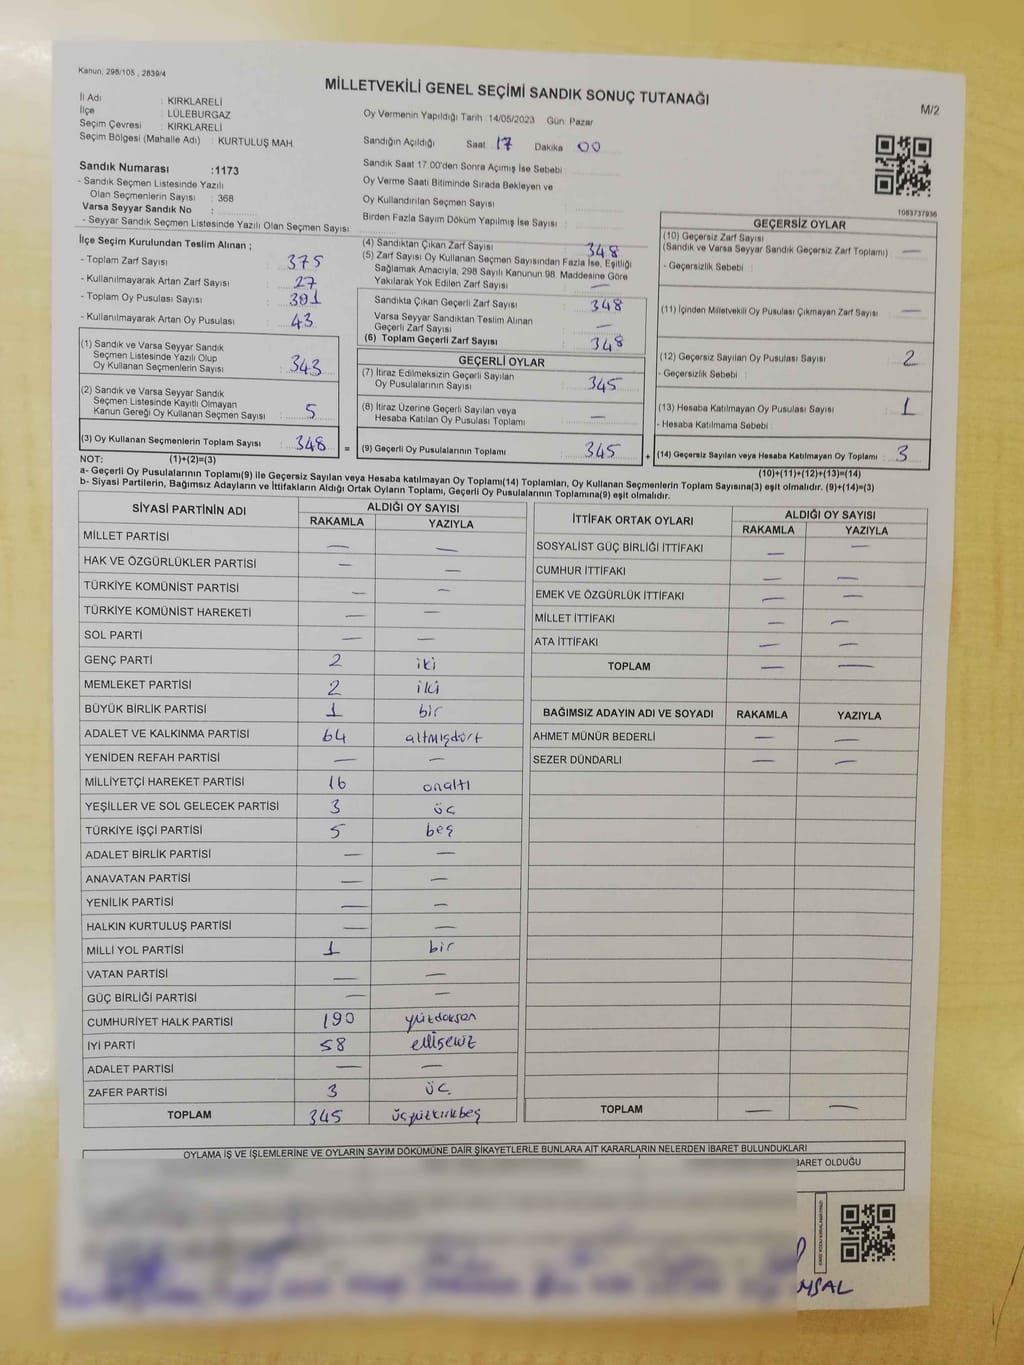 Kanun, 298/105 , 2839/4
MİLLETVEKİLİ GENEL SEÇİMİ SANDIK SONUÇ TUTANAĞI
M/2
İl Adı : KIRKLARELİ
İlçe : LÜLEBURGAZ
Seçim Çevresi : KIRKLARELİ
Seçim Bölgesi (Mahalle Adı) : KURTULUŞ MAH.
Sandık Numarası :1173
- Sandık Seçmen Listesinde Yazılı
Olan Seçmenlerin Sayısı : 368
Varsa Seyyar Sandık No :
- Seyyar Sandık Seçmen Listesinde Yazılı Olan Seçmen Sayısı:
Oy Vermenin Yapıldığı Tarih :14/05/2023 Gün: Pazar
Sandığın Açıldığı Saat 17 Dakika 00
Sandık Saat 17:00'den Sonra Açımış İse Sebebi
Oy Verme Saati Bitiminde Sırada Bekleyen ve
Oy Kullandırılan Seçmen Sayısı
Birden Fazla Sayım Döküm Yapılmış İse Sayısı :
1083737936
İlçe Seçim Kurulundan Teslim Alınan ;
- Toplam Zarf Sayısı : 375
- Kullanılmayarak Artan Zarf Sayısı : 27
- Toplam Oy Pusulası Sayısı : 391
- Kullanılmayarak Artan Oy Pusulası : 43
(1) Sandık ve Varsa Seyyar Sandık
Seçmen Listesinde Yazılı Olup
Oy Kullanan Seçmenlerin Sayısı : 343
(2) Sandık ve Varsa Seyyar Sandık
Seçmen Listesinde Kayıtlı Olmayan
Kanun Gereği Oy Kullanan Seçmen Sayısı : 5
(3) Oy Kullanan Seçmenlerin Toplam Sayısı : 348 =
(4) Sandıktan Çıkan Zarf Sayısı 348
(5) Zarf Sayısı Oy Kullanan Seçmen Sayısından Fazla İse, Eşitliği
Sağlamak Amacıyla, 298 Sayılı Kanunun 98. Maddesine Göre
Yakılarak Yok Edilen Zarf Sayısı : —
Sandıkta Çıkan Geçerli Zarf Sayısı : 348
Varsa Seyyar Sandıktan Teslim Alınan
Geçerli Zarf Sayısı : —
(6) Toplam Geçerli Zarf Sayısı : 348
GEÇERLİ OYLAR
(7) İtiraz Edilmeksizin Geçerli Sayılan
Oy Pusulalarının Sayısı : 345
(8) İtiraz Üzerine Geçerli Sayılan veya
Hesaba Katılan Oy Pusulası Toplamı : —
(9) Geçerli Oy Pusulalarının Toplamı : 345 +
GEÇERSİZ OYLAR
(10) Geçersiz Zarf Sayısı
(Sandık ve Varsa Seyyar Sandık Geçersiz Zarf Toplamı) : —
- Geçersizlik Sebebi :
(11) İçinden Milletvekili Oy Pusulası Çıkmayan Zarf Sayısı : —
(12) Geçersiz Sayılan Oy Pusulası Sayısı : 2
- Geçersizlik Sebebi :
(13) Hesaba Katılmayan Oy Pusulası Sayısı : 1
- Hesaba Katılmama Sebebi :
(14) Geçersiz Sayılan veya Hesaba Katılmayan Oy Toplamı : 3
NOT: (1)+(2)=(3)
(10)+(11)+(12)+(13)=(14)
a- Geçerli Oy Pusulalarının Toplamı(9) ile Geçersiz Sayılan veya Hesaba katılmayan Oy Toplamı(14) Toplamları, Oy Kullanan Seçmenlerin Toplam Sayısına(3) eşit olmalıdır. (9)+(14)=(3)
b- Siyasi Partilerin, Bağımsız Adayların ve İttifakların Aldığı Ortak Oyların Toplamı, Geçerli Oy Pusulalarının Toplamına(9) eşit olmalıdır.
SİYASİ PARTİNİN ADI ALDIĞI OY SAYISI
RAKAMLA YAZIYLA
MİLLET PARTİSİ — —
HAK VE ÖZGÜRLÜKLER PARTİSİ — —
TÜRKİYE KOMÜNİST PARTİSİ — —
TÜRKİYE KOMÜNİST HAREKETİ — —
SOL PARTİ — —
GENÇ PARTİ 2 iki
MEMLEKET PARTİSİ 2 iki
BÜYÜK BİRLİK PARTİSİ 1 bir
ADALET VE KALKINMA PARTİSİ 64 altmışdört
YENİDEN REFAH PARTİSİ — —
MİLLİYETÇİ HAREKET PARTİSİ 16 onaltı
YEŞİLLER VE SOL GELECEK PARTİSİ 3 üç
TÜRKİYE İŞÇİ PARTİSİ 5 beş
ADALET BİRLİK PARTİSİ — —
ANAVATAN PARTİSİ — —
YENİLİK PARTİSİ — —
HALKIN KURTULUŞ PARTİSİ — —
MİLLİ YOL PARTİSİ 1 bir
VATAN PARTİSİ — —
GÜÇ BİRLİĞİ PARTİSİ — —
CUMHURİYET HALK PARTİSİ 190 yüzdoksan
İYİ PARTİ 58 ellisekiz
ADALET PARTİSİ — —
ZAFER PARTİSİ 3 üç
TOPLAM 345 üçyüzkırkbeş
İTTİFAK ORTAK OYLARI ALDIĞI OY SAYISI
RAKAMLA YAZIYLA
SOSYALİST GÜÇ BİRLİĞİ İTTİFAKI — —
CUMHUR İTTİFAKI — —
EMEK VE ÖZGÜRLÜK İTTİFAKI — —
MİLLET İTTİFAKI — —
ATA İTTİFAKI — —
TOPLAM — —
BAĞIMSIZ ADAYIN ADI VE SOYADI RAKAMLA YAZIYLA
AHMET MÜNÜR BEDERLİ — —
SEZER DÜNDARLI — —
TOPLAM — —
OYLAMA İŞ VE İŞLEMLERİNE VE OYLARIN SAYIM DÖKÜMÜNE DAİR ŞİKAYETLERLE BUNLARA AİT KARARLARIN NELERDEN İBARET BULUNDUKLARI
BARET OLDUĞU